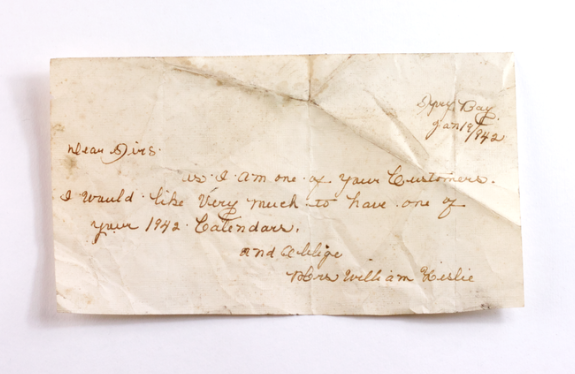 Spry Bay.
Jan 19/1942
Dear Sirs.
as I am one of your Customers.
I would like Very much to have one of
your 1942 Calendars.
and Oblige
Mrs William Leslie